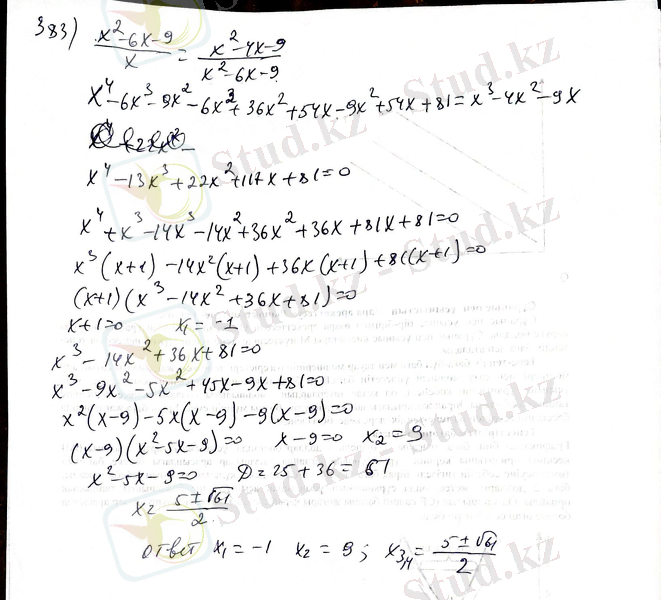 383) (x²-6x-9)/x = (x²-4x-9)/(x²-6x-9)
x⁴-6x³-9x²-6x³+36x²+54x-9x²+54x+81=x³-4x²-9x
x⁴-13x³+22x²+117x+81=0
x⁴+x³-14x³-14x²+36x²+36x+81x+81=0
x³(x+1)-14x²(x+1)+36x(x+1)+81(x+1)=0
(x+1)(x³-14x²+36x+81)=0
x+1=0 x₁=-1
x³-14x²+36x+81=0
x³-9x²-5x²+45x-9x+81=0
x²(x-9)-5x(x-9)-9(x-9)=0
(x-9)(x²-5x-9)=0 x-9=0 x₂=9
x²-5x-9=0 D=25+36=61
x=(5±√61)/2
ответ x₁=-1 x₂=9; x₃,₄=(5±√61)/2
Stud.kz - Stud.kz
Stud.kz - Stud.kz
Stud.kz - Stud.kz
Stud.kz - Stud.kz
Stud.kz - Stud.kz